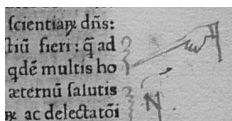 scientiaꝝ dñs:
hiũ fieri: q̃ ad
qdẽ multis ho
æternũ salutis
ꝝ ac delectatõi
N